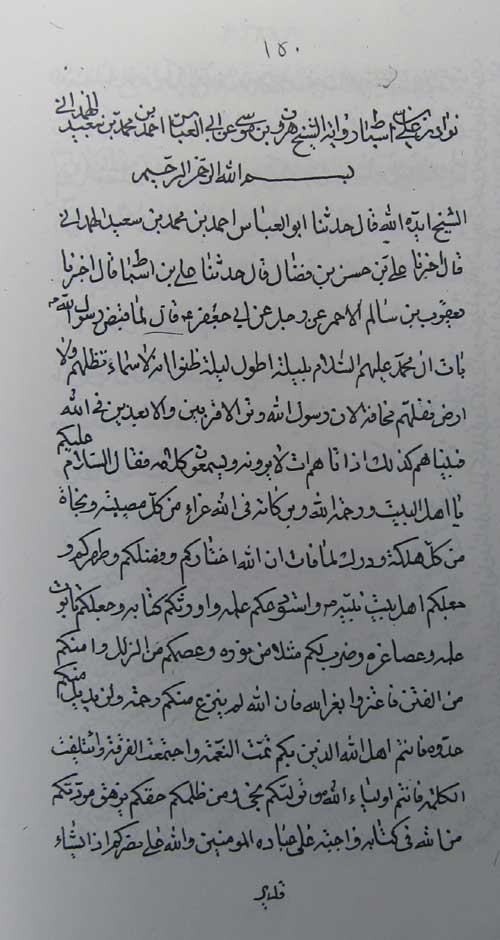 ١٤٠
نوادر علي بن اسباط رواية الشيخ هرون بن موسى عن ابي العباس احمد بن محمد بن سعيد الهمداني
بسم الله الرحمن الرحيم
الشيخ ايده الله قال حدثنا ابو العباس احمد بن محمد بن سعيد الهمداني
قال اخبرنا علي بن حسن بن فضال قال حدثنا علي بن اسباط قال اخبرنا
يعقوب بن سالم الاحمر عن رجل عن ابي جعفر ع قال لما قبض رسول الله ص
بات ال محمد عليهم السلام بليلة اطول ليلة ظنوا انه لا سماء تظلهم ولا
ارض تقلهم مخافة لان رسول الله وتر الاقربين والابعدين في الله
فبيناهم كذلك اذ اتاهم ات لا يرونه ويسمعون كلامه فقال السلام عليكم
يا اهل البيت ورحمة الله وبركاته في الله عزاء من كل مصيبة ونجاة
من كل هلكة ودرك لما فات ان الله اختاركم وفضلكم وطهركم و
جعلكم اهل بيت نبيه ص واستودعكم علمه واورثكم كتابه وجعلكم تابوت
علمه وعصا عزه وضرب لكم مثلا من نوره وعصمكم من الزلل وامنكم
من الفتن فاعتزوا بعز الله فان الله لم ينزع منكم رحمته ولن يديل منكم
عدوه فانتم اهل الله الذين بكم تمت النعمة واجتمعت الفرقة وائتلفت
الكلمة فانتم اولياء الله من تولاكم نجى ومن ظلمكم حقكم يزهق مودتكم
من الله في كتابه واجبة على عباده المومنين والله على نصركم اذا يشاء
قدير